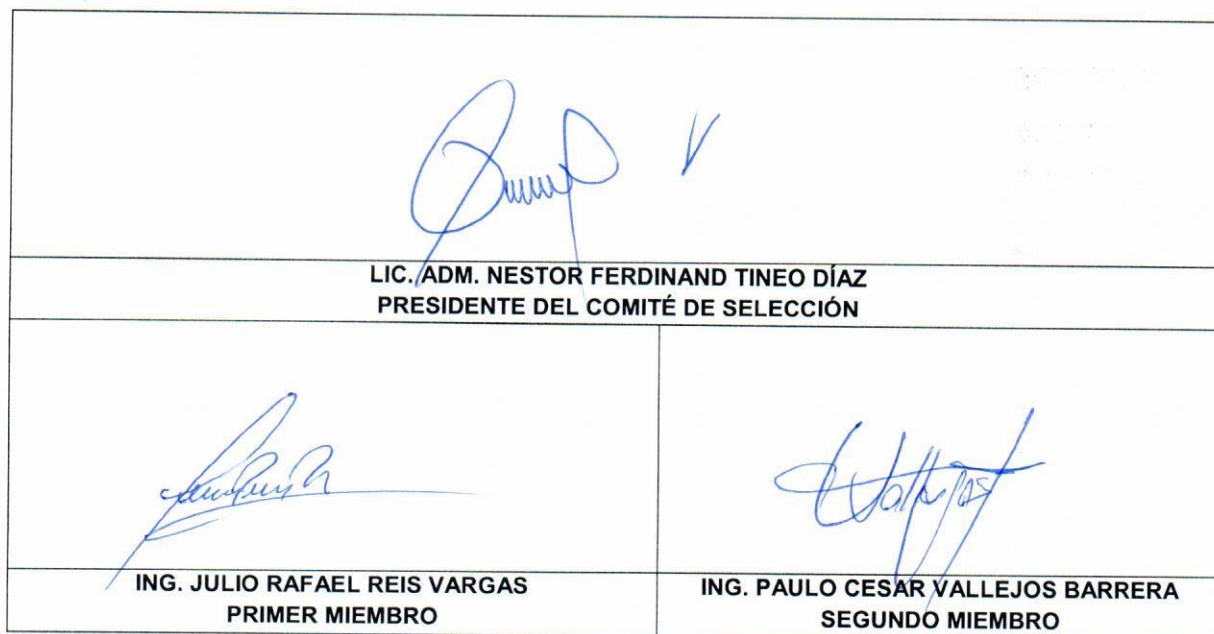 LIC. ADM. NESTOR FERDINAND TINEO DÍAZ
PRESIDENTE DEL COMITÉ DE SELECCIÓN
ING. JULIO RAFAEL REIS VARGAS
PRIMER MIEMBRO
ING. PAULO CESAR VALLEJOS BARRERA
SEGUNDO MIEMBRO